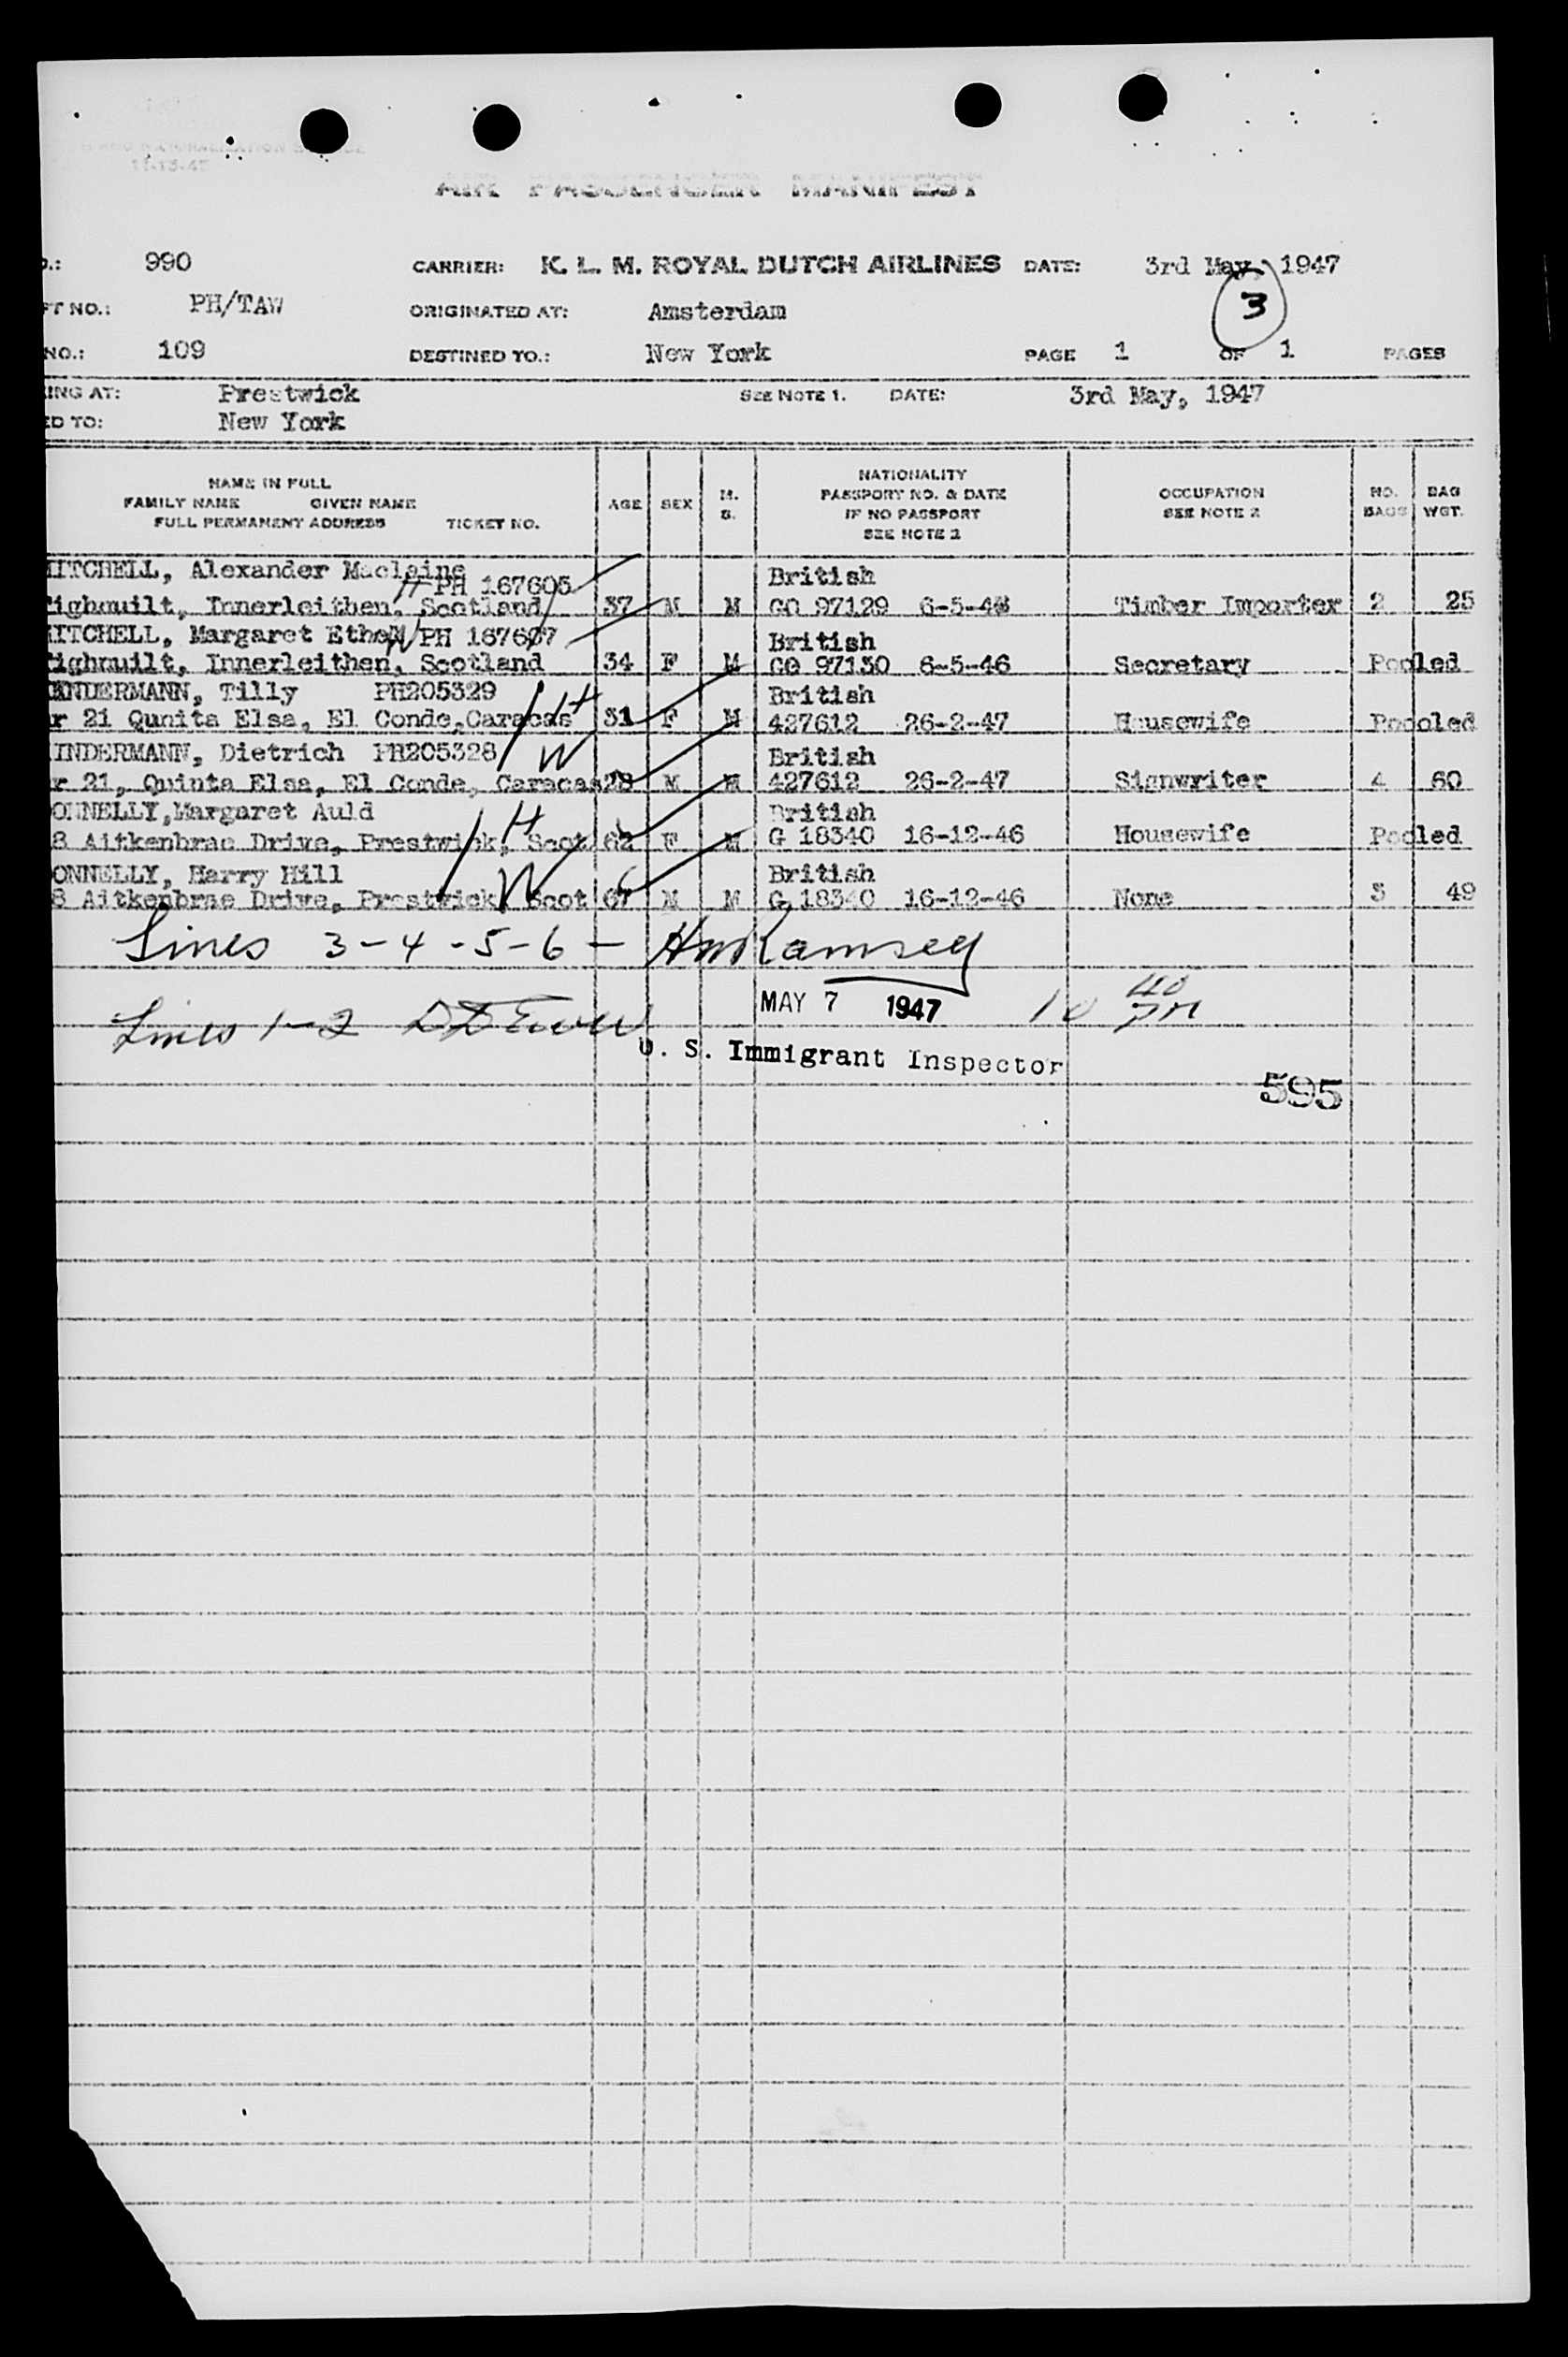 11-13-47
AIR PASSENGER MANIFEST
.: 990 CARRIER: K. L. M. ROYAL DUTCH AIRLINES DATE: 3rd May, 1947
FT NO.: PH/TAW ORIGINATED AT: Amsterdam 3
NO.: 109 DESTINED TO.: New York PAGE 1 OF 1 PAGES
ING AT: Prestwick SEE NOTE 1. DATE: 3rd May, 1947
ED TO: New York
NAME IN FULL
FAMILY NAME GIVEN NAME
FULL PERMANENT ADDRESS TICKET NO.
AGE SEX M. S.
NATIONALITY
PASSPORT NO. & DATE
IF NO PASSPORT
SEE NOTE 2
OCCUPATION
SEE NOTE 2
NO. BAGS
BAG WGT.
MITCHELL, Alexander Maclaine H PH 167605 British
ighnuilt, Innerleithen, Scotland 37 M M CO 97129 6-5-46 Timber Importer 2 25
MITCHELL, Margaret Ethel W PH 167607 British
ighnuilt, Innerleithen, Scotland 34 F M CO 97130 6-5-46 Secretary Pooled
INDERMANN, Tilly PH205329 H British
r 21 Qunita Elsa, El Conde, Caracas 31 F M 427612 26-2-47 Housewife Poooled
INDERMANN, Dietrich PH205328 W British
r 21, Quinta Elsa, El Conde, Caracas 28 M M 427612 26-2-47 Signwriter 4 60
ONNELLY, Margaret Auld H British
8 Aitkenbrae Drive, Prestwick, Scot 62 F M G 18340 16-12-46 Housewife Pooled
ONNELLY, Harry Hill W British
8 Aitkenbrae Drive, Prestwick, Scot 67 M M G 18340 16-12-46 None 3 49
Lines 3-4-5-6- HM Ramsey
MAY 7 1947 10 40 PM
Lines 1-2
U. S. Immigrant Inspector
595